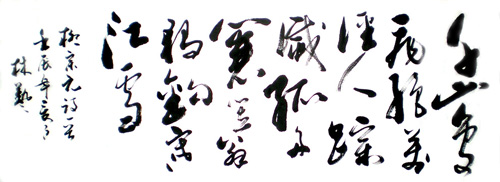 千山鳥
飛絕萬
徑人踪
滅孤舟
蓑笠翁
獨釣寒
江雪
柳宗元詩一首
壬辰年夏月
林